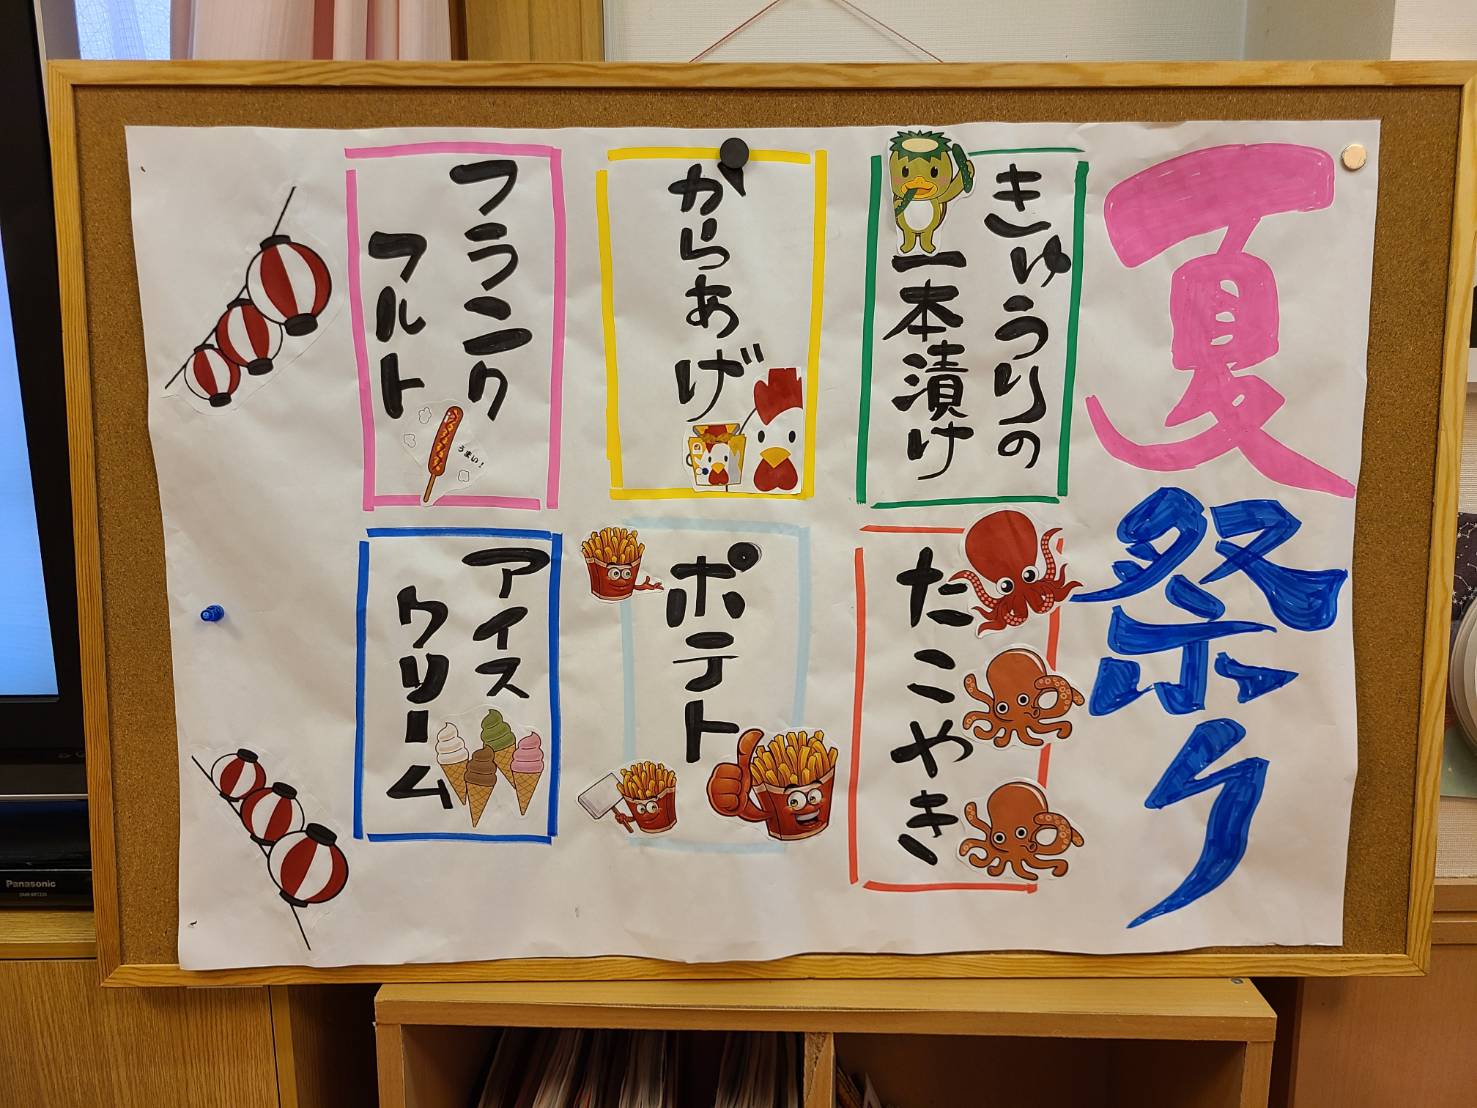 夏祭り
きゅうりの
一本漬け
たこやき
からあげ
ポテト
フランク
フルト
うまい!
アイス
クリーム
Panasonic